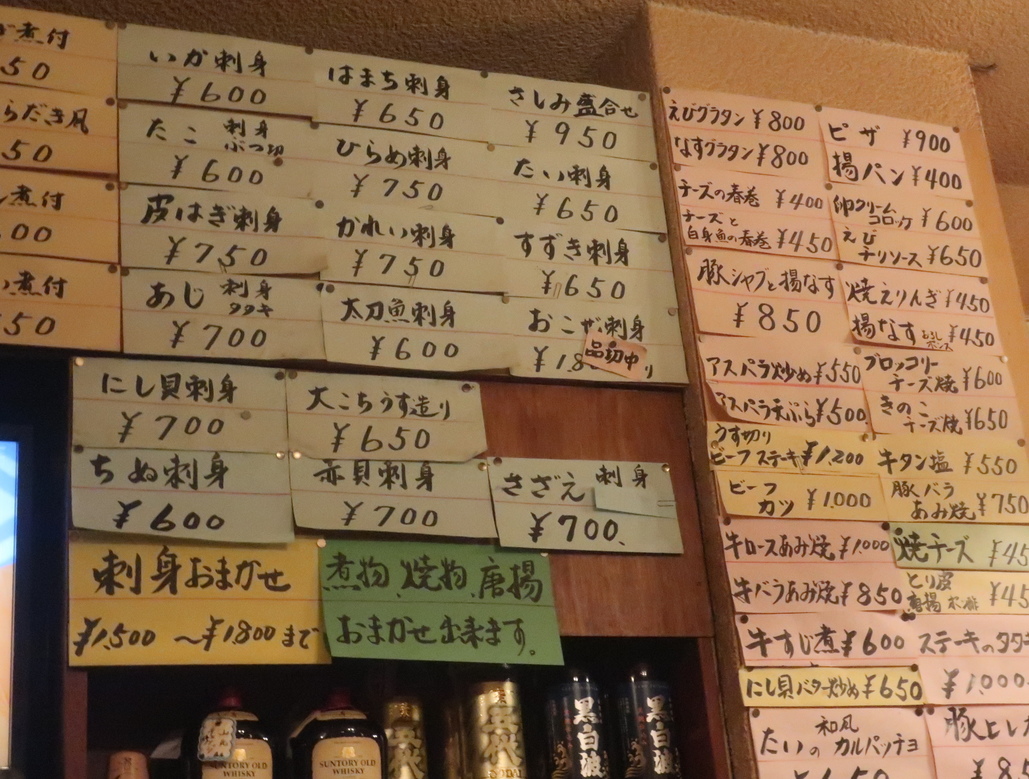 煮付
50
らだき風
50
煮付
00
煮付
50
いか刺身
¥600
たこ 刺身
ぶつ切
¥600
皮はぎ刺身
¥750
あじ 刺身
タタキ
¥700
はまち刺身
¥650
ひらめ刺身
¥750
かれい刺身
¥750
太刀魚刺身
¥600
さしみ盛合せ
¥950
たい刺身
¥650
すずき刺身
¥650
おこぜ刺身
¥18
品切中
にし貝刺身
¥700
大こちうす造り
¥650
ちぬ刺身
¥600
赤貝刺身
¥700
さざえ 刺身
¥700.
刺身おまかせ
¥1,500 〜¥1,800まで
煮物、焼物、唐揚
おまかせ出来ます。
えびグラタン ¥800
なすグラタン ¥800
チーズの春巻 ¥400
チーズと
白身魚の春巻 ¥450
豚シャブと揚なす
¥850
アスパラ炒め ¥550
アスパラ天ぷら ¥500
うす切り
ビーフステーキ ¥1,200
ビーフ
カツ ¥1,000
牛ロースあみ焼 ¥1,000
牛バラあみ焼 ¥850
牛すじ煮 ¥600
にし貝バター炒め ¥650
和風
たいの カルパッチョ
ピザ ¥900
揚パン ¥400
卵クリーム
コロッケ ¥600
えび
チリソース ¥650
焼えりんぎ ¥450
揚なす おろし
ポンズ ¥450
ブロッコリー
チーズ焼 ¥600
きのこ
チーズ焼 ¥650
牛タン塩 ¥550
豚バラ
あみ焼 ¥750
焼チーズ ¥45
とり皮
唐揚 ¥45
ステーキのタタ
¥1,000
豚ヒレ
SUNTORY OLD
WHISKY
SUNTORY OLD
WHISKY
黒白波
黒白波